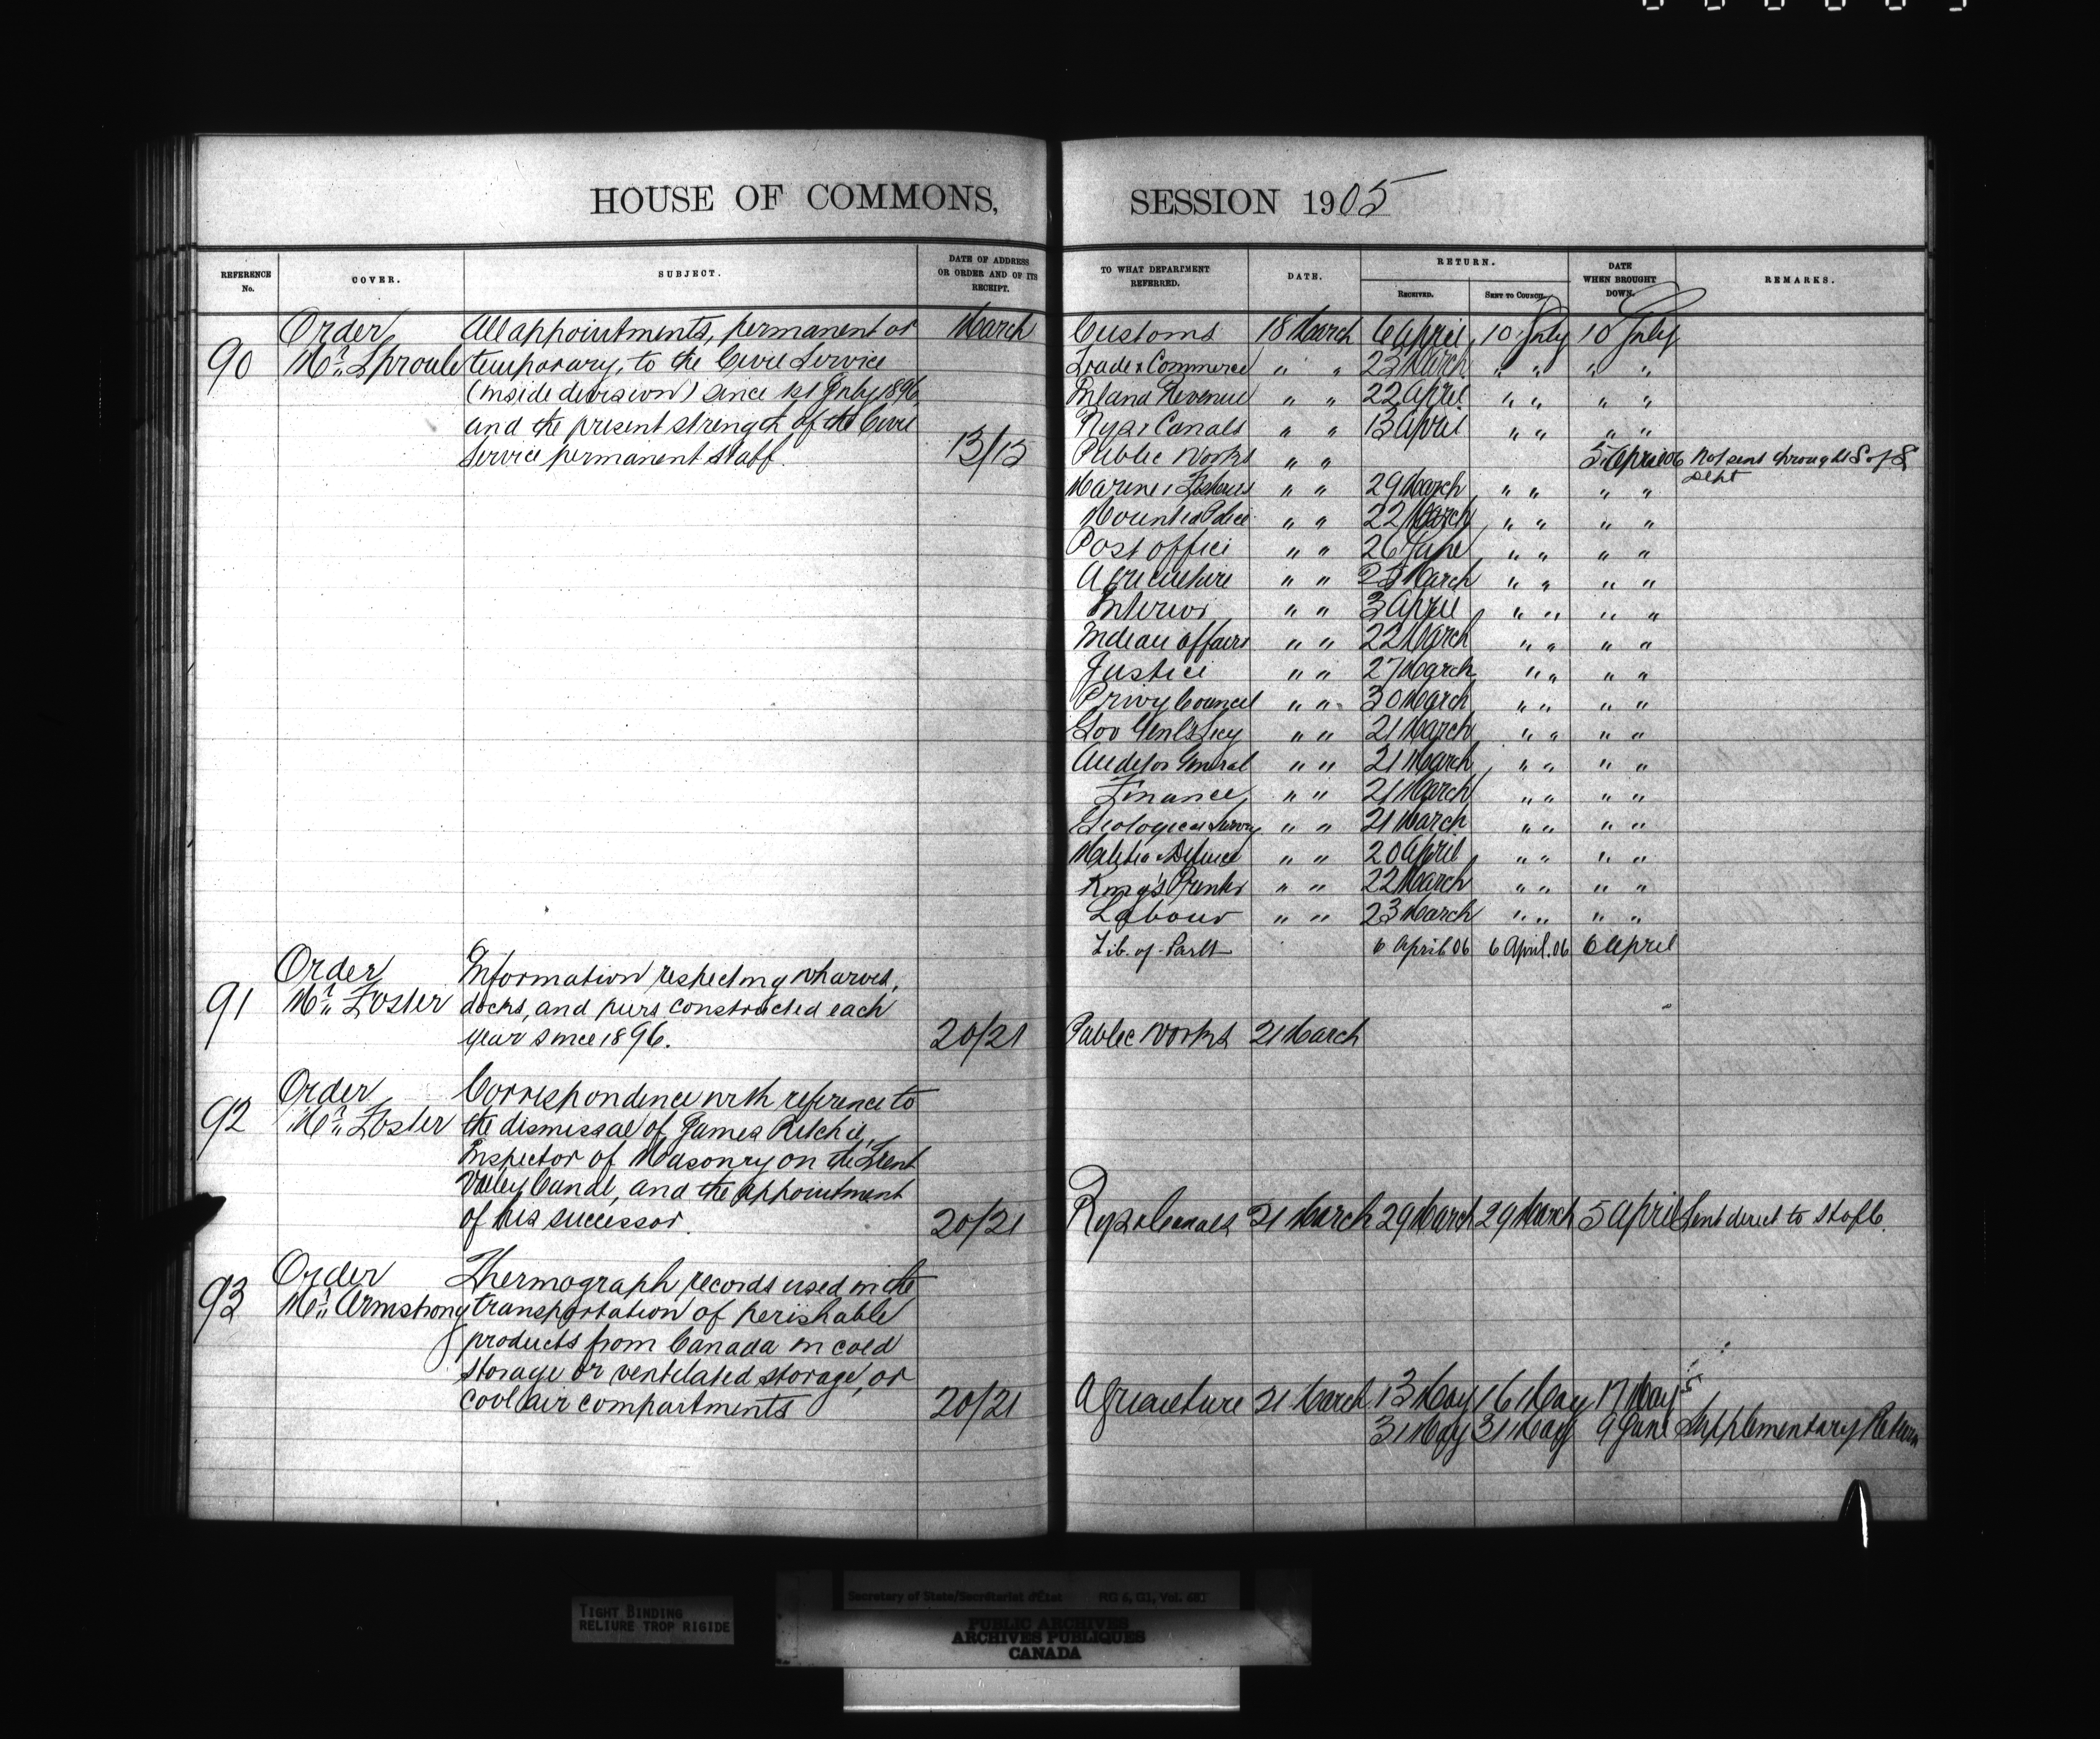 HOUSE OF COMMONS,
REFERENCE No.
COVER.
SUBJECT.
DATE OF ADDRESS OR ORDER AND OF ITS RECEIPT.
90 Order All appointments, permanent or March
Mr. Sproule temporary, to the Civil Service
(inside division) since 1st July 1896
and the present strength of the Civil
Service permanent staff. 13/15
91 Order Information respecting wharves,
Mr. Foster docks, and piers constructed each
year since 1896. 20/21
92 Order Correspondence with reference to
Mr. Foster the dismissal of James Ritchie,
Inspector of Masonry on the Trent
Valley Canal, and the appointment
of his successor. 20/21
93 Order Thermograph records used in the
Mr. Armstrong transportation of perishable
products from Canada in cold
storage or ventilated storage, or
cool air compartments 20/21
SESSION 1905
TO WHAT DEPARTMENT REFERRED.
DATE.
RETURN.
RECEIVED.
SENT TO COUNCIL.
DATE WHEN BROUGHT DOWN.
REMARKS.
Customs 18 March 6 April 10 July 10 July
Trade & Commerce " " 23 March " " " "
Inland Revenue " " 22 April " " " "
Rys & Canals " " 13 April " " " "
Public Works " " 5 April 06 Not sent through S of S
Dept
Marine & Fisheries " " 29 March " " " "
Mounted Police " " 22 March " " " "
Post Office " " 26 June " " " "
Agriculture " " March " " " "
Interior " " 3 April " " " "
Indian Affairs " " 22 March " " " "
Justice " " 27 March " " " "
Privy Council " " 30 March " " " "
Gov Genl's Secy " " 21 March " " " "
Auditor General " " 21 March " " " "
Finance " " 21 March " " " "
Geological Survey " " 21 March " " " "
Militia & Defence " " 20 April " " " "
King's Printer " " 22 March " " " "
Labour " " 23 March " " " "
Lib. of Parlt 6 April 06 6 April. 06 6 April
Public Works 21 March
Rys & Canals 21 March 29 March 29 March 5 April Sent direct to H of C.
Agriculture 21 March 13 May 16 May 17 May
31 May 31 May 9 June Supplementary Return
TIGHT BINDING
RELIURE TROP RIGIDE
Secretary of State/Secrétariat d'État RG 6, G1, Vol.
PUBLIC ARCHIVES
ARCHIVES PUBLIQUES
CANADA